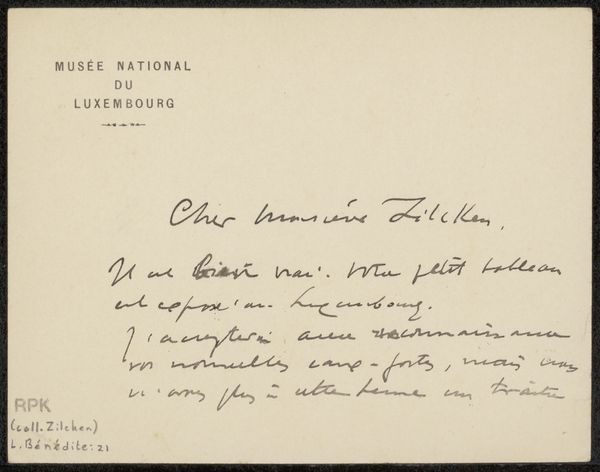 MUSÉE NATIONAL
DU
LUXEMBOURG
Cher Monsieur Zilcken,
Il est bien vrai. Votre petit tableau
est exposé au Luxembourg.
J'accepterai avec reconnaissance
vos nouvelles eaux-fortes, mais nous
n'avons plus à cette heure un
RPK
(coll. Zilcken)
L. Bénédite: 21